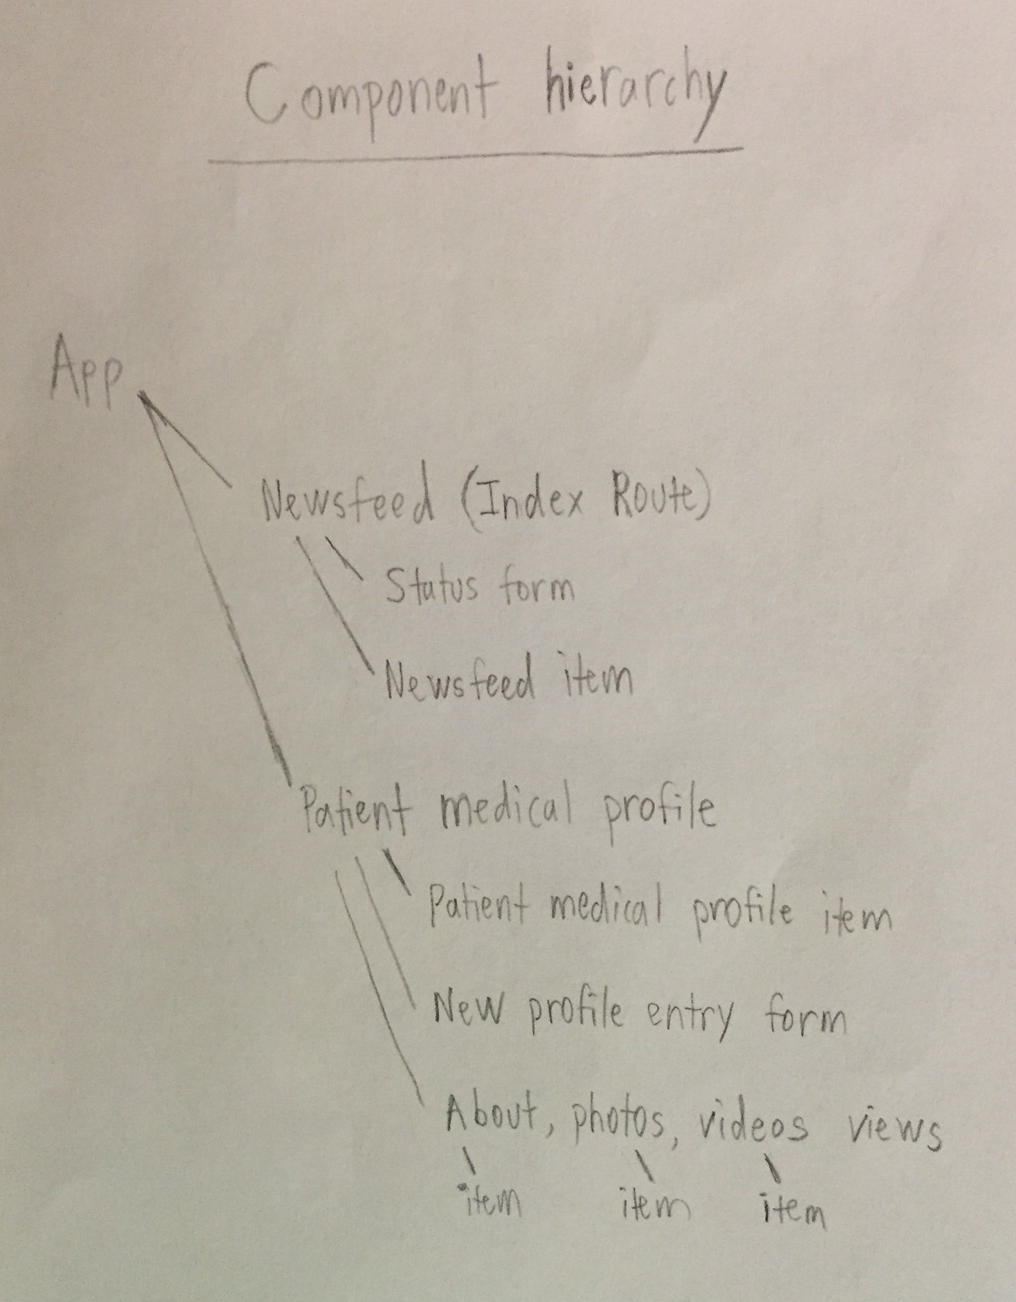 Component hierarchy
App
Newsfeed (Index Route)
Status form
Newsfeed item
Patient medical profile
Patient medical profile item
New profile entry form
About, photos, videos views
item item item